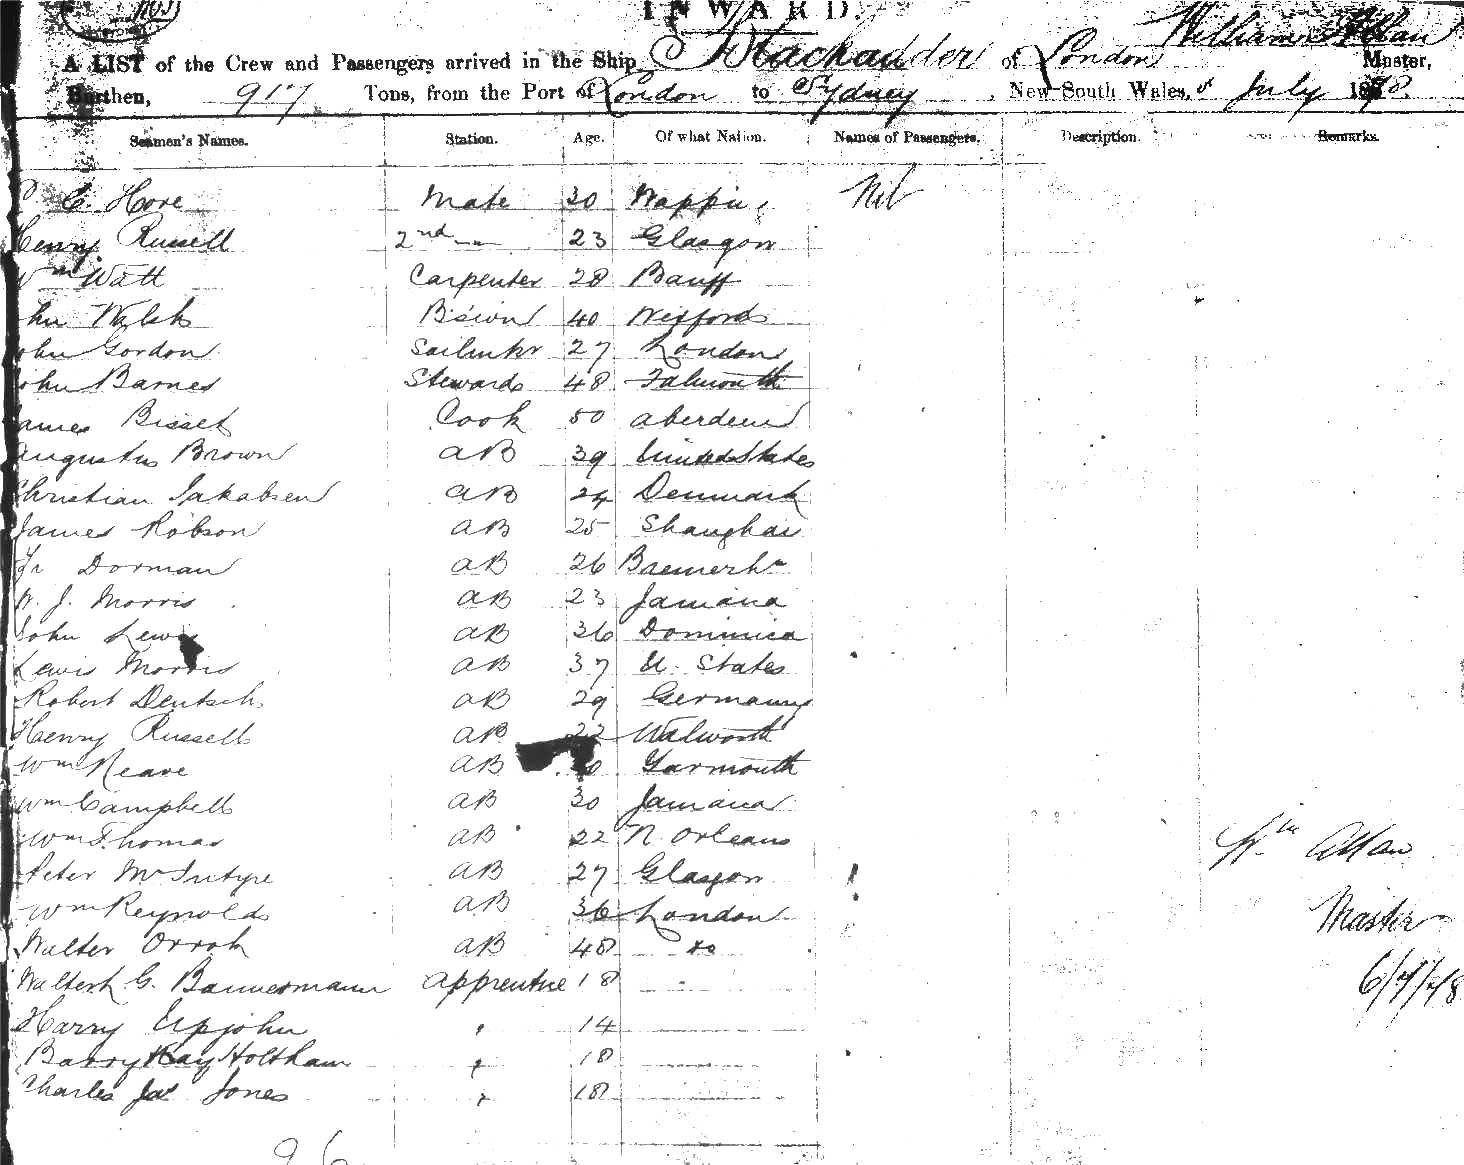 INWARD.
William Allan
A LIST of the Crew and Passengers arrived in the Ship Blackadder of London Master,
Burthen, 917 Tons, from the Port of London to Sydney, New South Wales, July 1878.
Seamen's Names. Station. Age. Of what Nation. Names of Passengers. Description. Remarks.
E. Hore Mate 30 Wapping Nil
Henry Russell 2nd " 23 Glasgow
Wm Watt Carpenter 28 Banff
John Walsh Bswn 40 Wexford
John Gordon Sailmkr 27 London
John Barnes Steward 48 Falmouth
James Bisset Cook 50 Aberdeen
Augustus Brown AB 39 United States
Christian Jakobsen AB 24 Denmark
James Robson AB 25 Shanghai
Fr Dorman AB 26 Baemerhn
W. J. Morris AB 23 Jamaica
John Lewis AB 36 Dominica
Lewis Morris AB 37 U. States
Robert Deutsch AB 29 Germany
Henry Russell AB 22 Walworth
Wm Neave AB Yarmouth
Wm Campbell AB 30 Jamaica
Wm Thomas AB 22 N. Orleans
Wm Allan
Peter McIntyre AB 27 Glasgow
Wm Reynolds AB 36 London
Master
Walter Orrok AB 48 do
Walter G. Bannermann Apprentice 18
6/7/78
Harry Upjohn " 14
Barry Kay Holtham " 18
Charles Jas Jones " 18
26